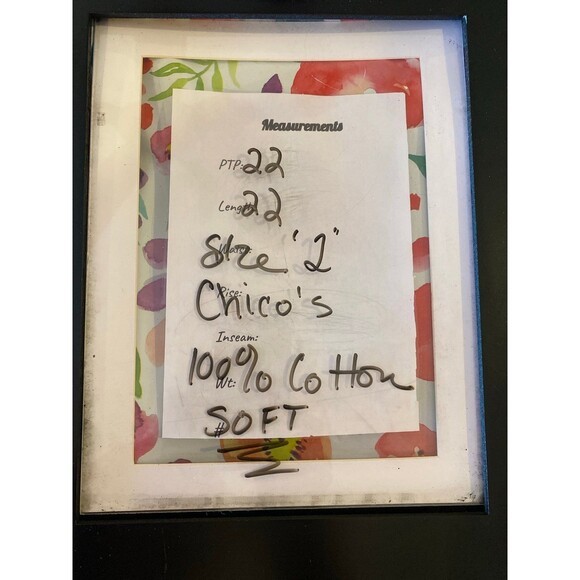 Measurements
PTP: 22
Length: 22
Waist:
Size "2"
Rise:
Chico's
Inseam:
Wt:
100% Cotton
#
SOFT